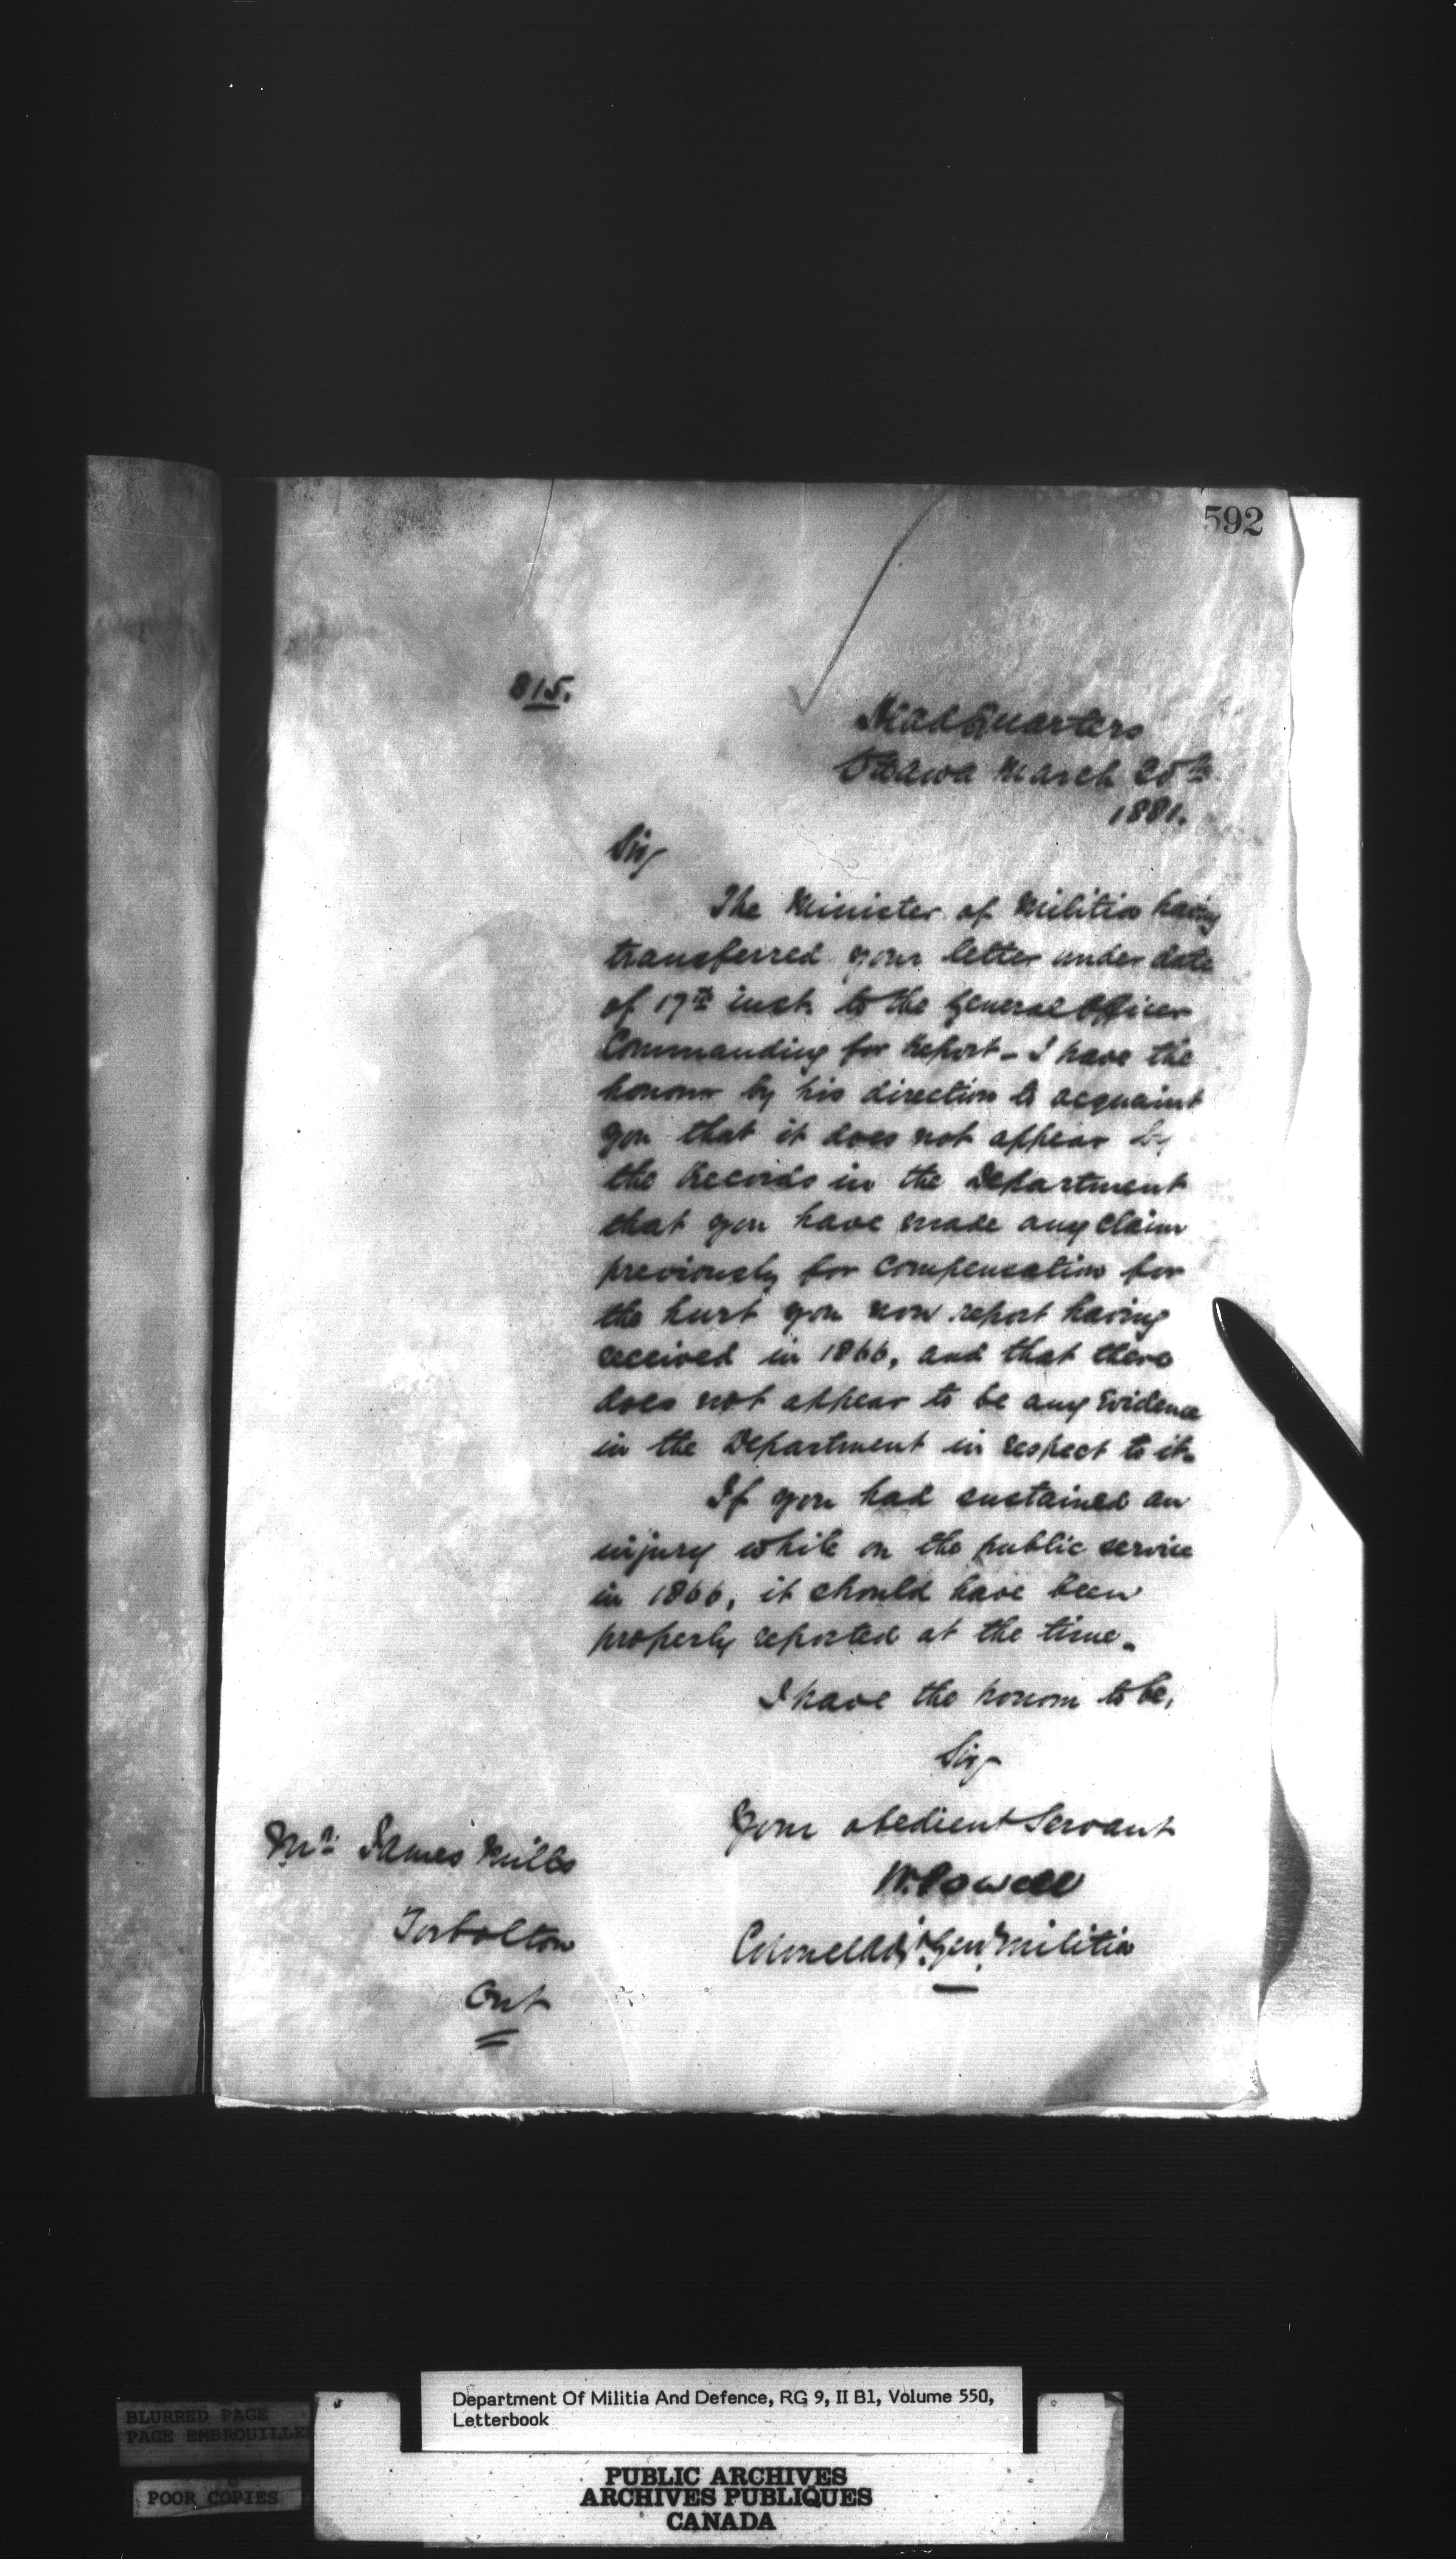 592
815.
Head Quarters
Ottawa March 25th
1881.
Sir,
The Minister of Militia having
transferred your letter under date
of 17th inst. to the General Officer
Commanding for Report - I have the
honour by his direction to acquaint
you that it does not appear by
the Records in the Department
that you have made any claim
previously for compensation for
the hurt you now report having
received in 1866, and that there
does not appear to be any Evidence
in the Department in respect to it.
If you had sustained an
injury while on the public service
in 1866, it should have been
properly reported at the time.
I have the honour to be,
Sir,
Your obedient Servant
W. Powell
Colonel Adjt. Genl. Militia
Mr. James Mills
Torbolton
Ont
Department Of Militia And Defence, RG 9, II B1, Volume 550,
Letterbook
BLURRED PAGE
PAGE EMBROUILLEE
POOR COPIES
PUBLIC ARCHIVES
ARCHIVES PUBLIQUES
CANADA